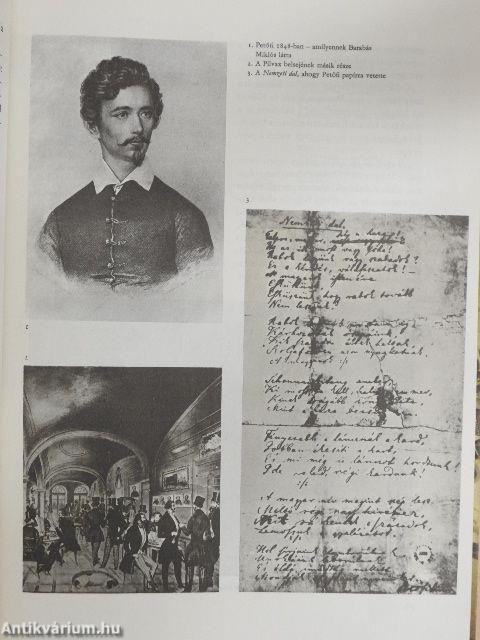 1. Petőfi 1848-ban – amilyennek Barabás
Miklós látta
2. A Pilvax belsejének másik része
3. A Nemzeti dal, ahogy Petőfi papírra vetette
3
Nemzeti dal.
hí a haza!
Itt az idő, most vagy soha!
Rabok legyünk vagy szabadok?
Ez a kérdés, válaszszatok! –
A magyarok istenére
Esküszünk,
Esküszünk, hogy rabok tovább
Nem leszünk!
Rabok
Kárhozottak ősapáink
Kik szabadon éltek haltak,
Szolgaföldben nem nyughatnak.
A magyarok :/:
Sehonnai
Ki most, ha kell, halni nem mer,
Kinek drágább rongy élete,
Mint a haza
Fényesebb a láncznál a kard,
Jobban ékesíti a kart,
És mi mégis lánczot hordtunk!
Ide veled, régi kardunk!
:/:
A magyar név megint szép lesz,
Méltó régi nagy híréhez,
Mit rá kentek a századok,
Lemossuk a gyalázatot.
Hol sírjaink domborulnak
Unokáink leborulnak
És áldó imádság mellett
Antikvárium.hu